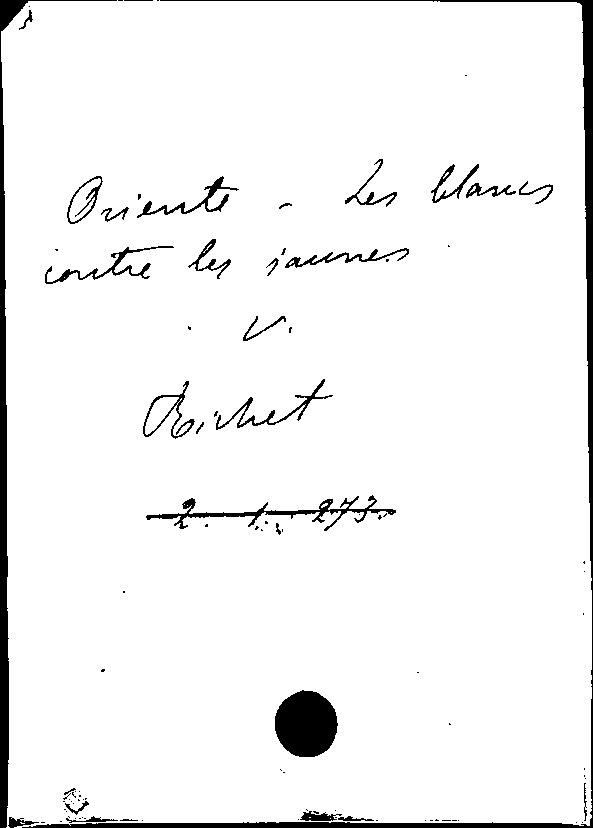 Oriente - Les blancs
contre les jaunes
V.
Richet
2. 1. 273.